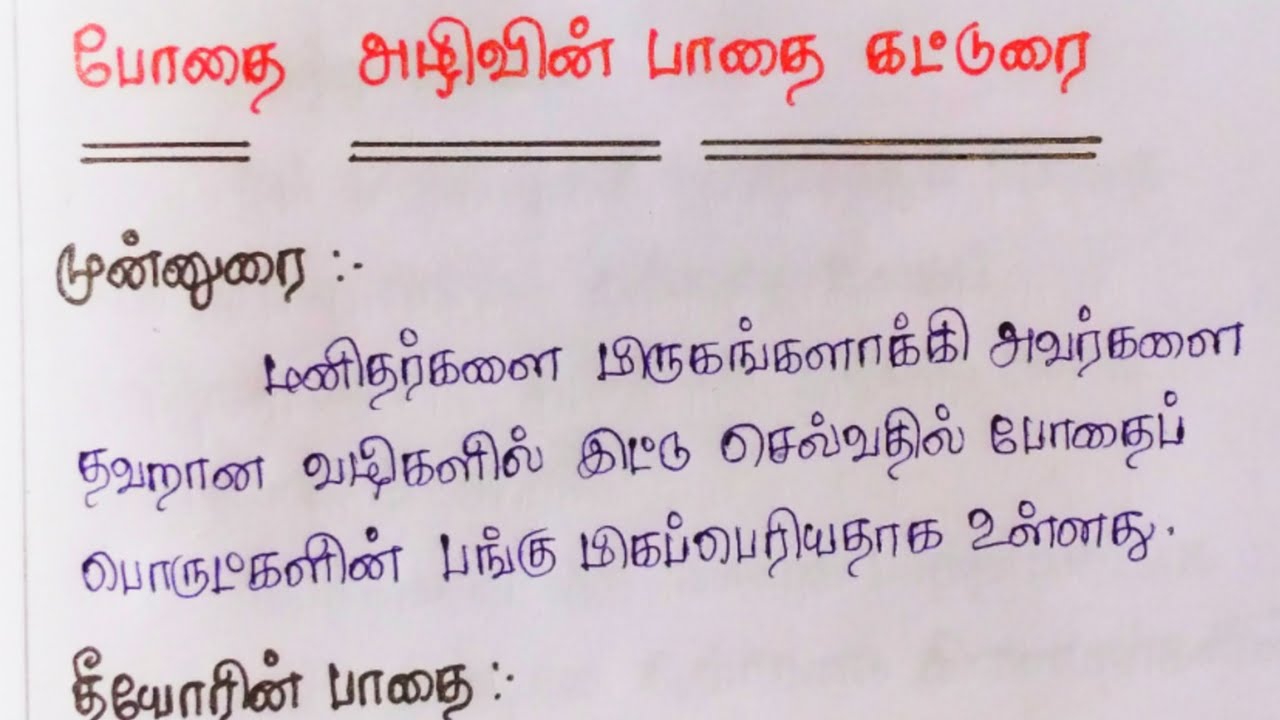 போதை அழிவின் பாதை கட்டுரை
முன்னுரை :-
மனிதர்களை மிருகங்களாக்கி அவர்களை
தவறான வழிகளில் இட்டு செல்வதில் போதைப்
பொருட்களின் பங்கு மிகப்பெரியதாக உள்ளது.
தீயோரின் பாதை :-